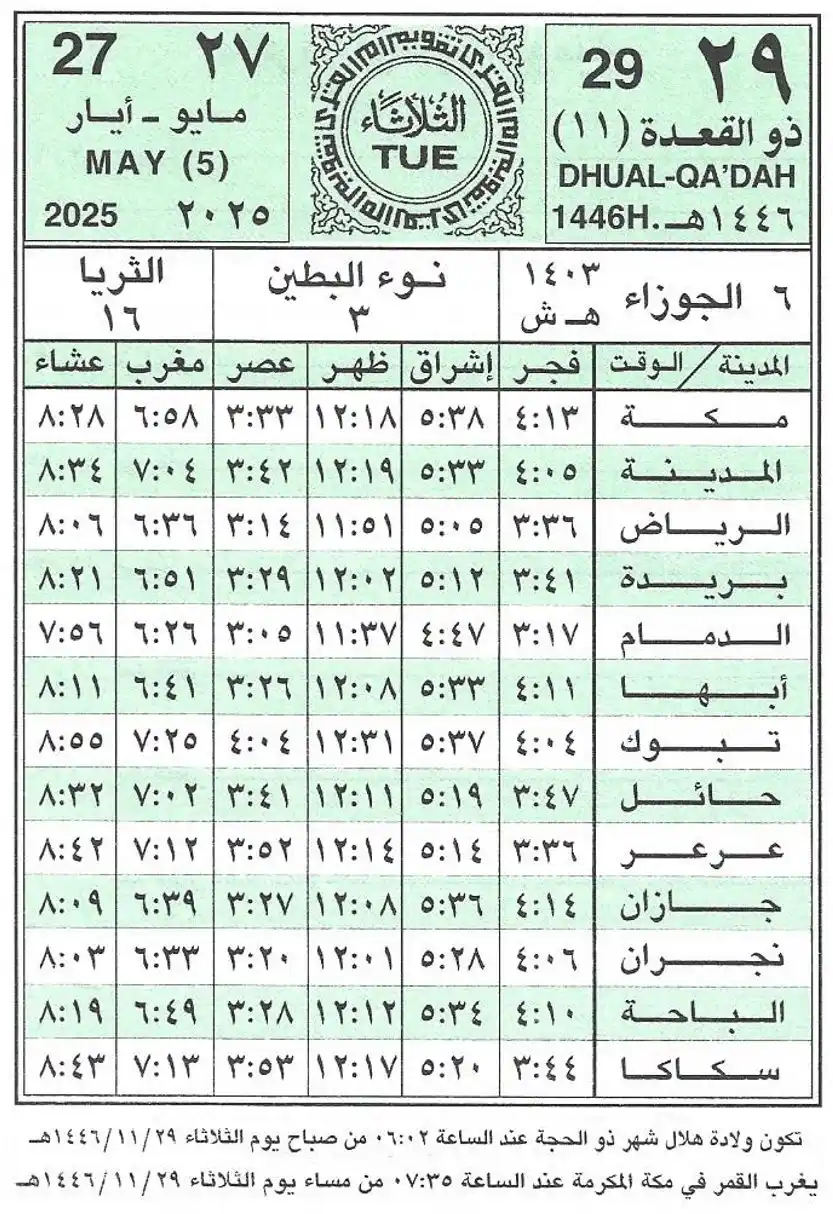 27 ٢٧
مايو - أيار
MAY (5)
2025 ٢٠٢٥
الثلاثاء
TUE
29 ٢٩
ذو القعدة (١١)
DHUAL-QA'DAH
1446H. ١٤٤٦هـ
٦ الجوزاء ١٤٠٣ هـ ش
نوء البطين ٣
الثريا ١٦
المدينة / الوقت فجر إشراق ظهر عصر مغرب عشاء
مكة ٤:١٣ ٥:٣٨ ١٢:١٨ ٣:٣٣ ٦:٥٨ ٨:٢٨
المدينة ٤:٠٥ ٥:٣٣ ١٢:١٩ ٣:٤٢ ٧:٠٤ ٨:٣٤
الرياض ٣:٣٦ ٥:٠٥ ١١:٥١ ٣:١٤ ٦:٣٦ ٨:٠٦
بريدة ٣:٤١ ٥:١٢ ١٢:٠٢ ٣:٢٩ ٦:٥١ ٨:٢١
الدمام ٣:١٧ ٤:٤٧ ١١:٣٧ ٣:٠٥ ٦:٢٦ ٧:٥٦
أبها ٤:١١ ٥:٣٣ ١٢:٠٨ ٣:٢٦ ٦:٤١ ٨:١١
تبوك ٤:٠٤ ٥:٣٧ ١٢:٣١ ٤:٠٤ ٧:٢٥ ٨:٥٥
حائل ٣:٤٧ ٥:١٩ ١٢:١١ ٣:٤١ ٧:٠٢ ٨:٣٢
عرعر ٣:٣٦ ٥:١٤ ١٢:١٤ ٣:٥٢ ٧:١٢ ٨:٤٢
جازان ٤:١٤ ٥:٣٦ ١٢:٠٨ ٣:٢٧ ٦:٣٩ ٨:٠٩
نجران ٤:٠٦ ٥:٢٨ ١٢:٠١ ٣:٢٠ ٦:٣٣ ٨:٠٣
الباحة ٤:١٠ ٥:٣٤ ١٢:١٢ ٣:٢٨ ٦:٤٩ ٨:١٩
سكاكا ٣:٤٤ ٥:٢٠ ١٢:١٧ ٣:٥٣ ٧:١٣ ٨:٤٣
تكون ولادة هلال شهر ذو الحجة عند الساعة ٠٦:٠٢ من صباح يوم الثلاثاء ١٤٤٦/١١/٢٩هـ
يغرب القمر في مكة المكرمة عند الساعة ٠٧:٣٥ من مساء يوم الثلاثاء ١٤٤٦/١١/٢٩هـ